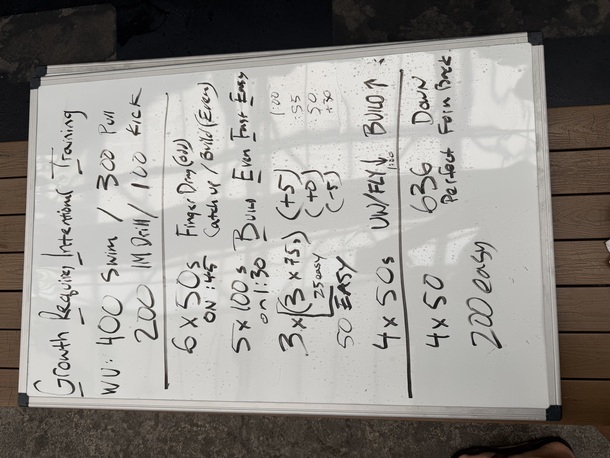 Growth Requires Intentional Training
WU: 400 Swim / 300 Pull
200 IM Drill / 100 Kick
6 x 50s Finger Drag (odd)
ON :45 Catch up / Build (Even)
5 x 100s Build Even Fast Easy
on 1:30
3 x (3 x 75s) (+5) 1:00
(+0) :55
25 easy (-5) :50
+30
50 EASY
4 x 50s UW/FLY↓ BUILD↑
4 x 50 636 Down
Perfect Form Back
200 easy